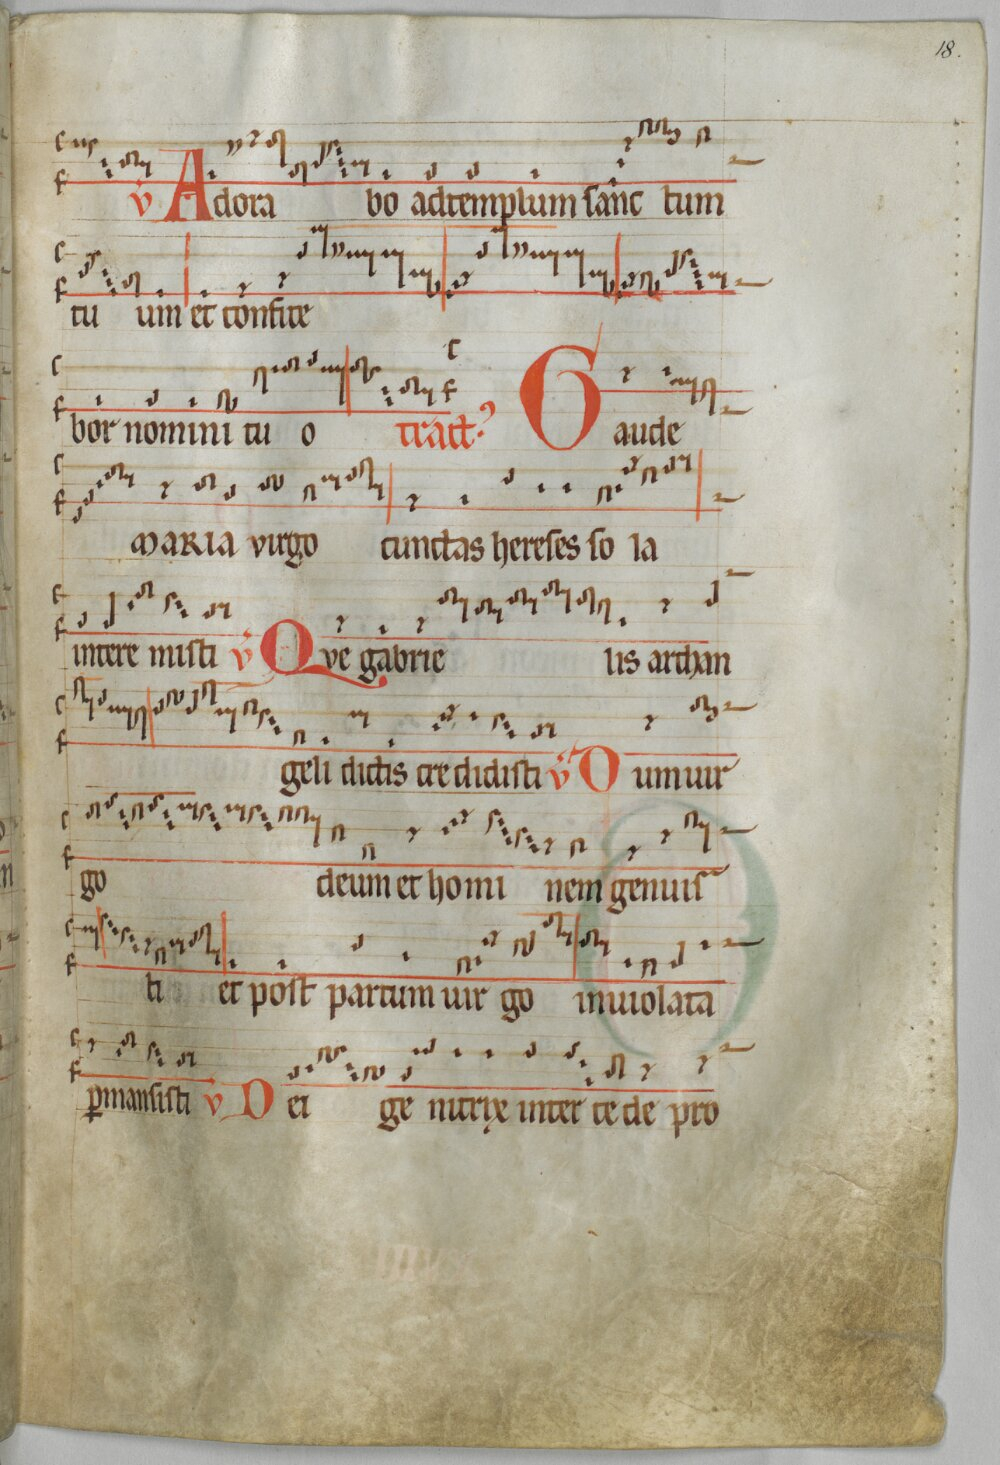 18.
v Adora bo ad templum sanc tum
tu um et confite
bor nomini tu o tract. Gaude
MARIA virgo cunctas hereses so la
intere misti v Qve gabrie lis archan
geli dictis cre didisti v Dum uir
go deum et homi nem genuis
ti et post partum uir go inuiolata
pmansisti v Dei ge nitrix inter cede pro